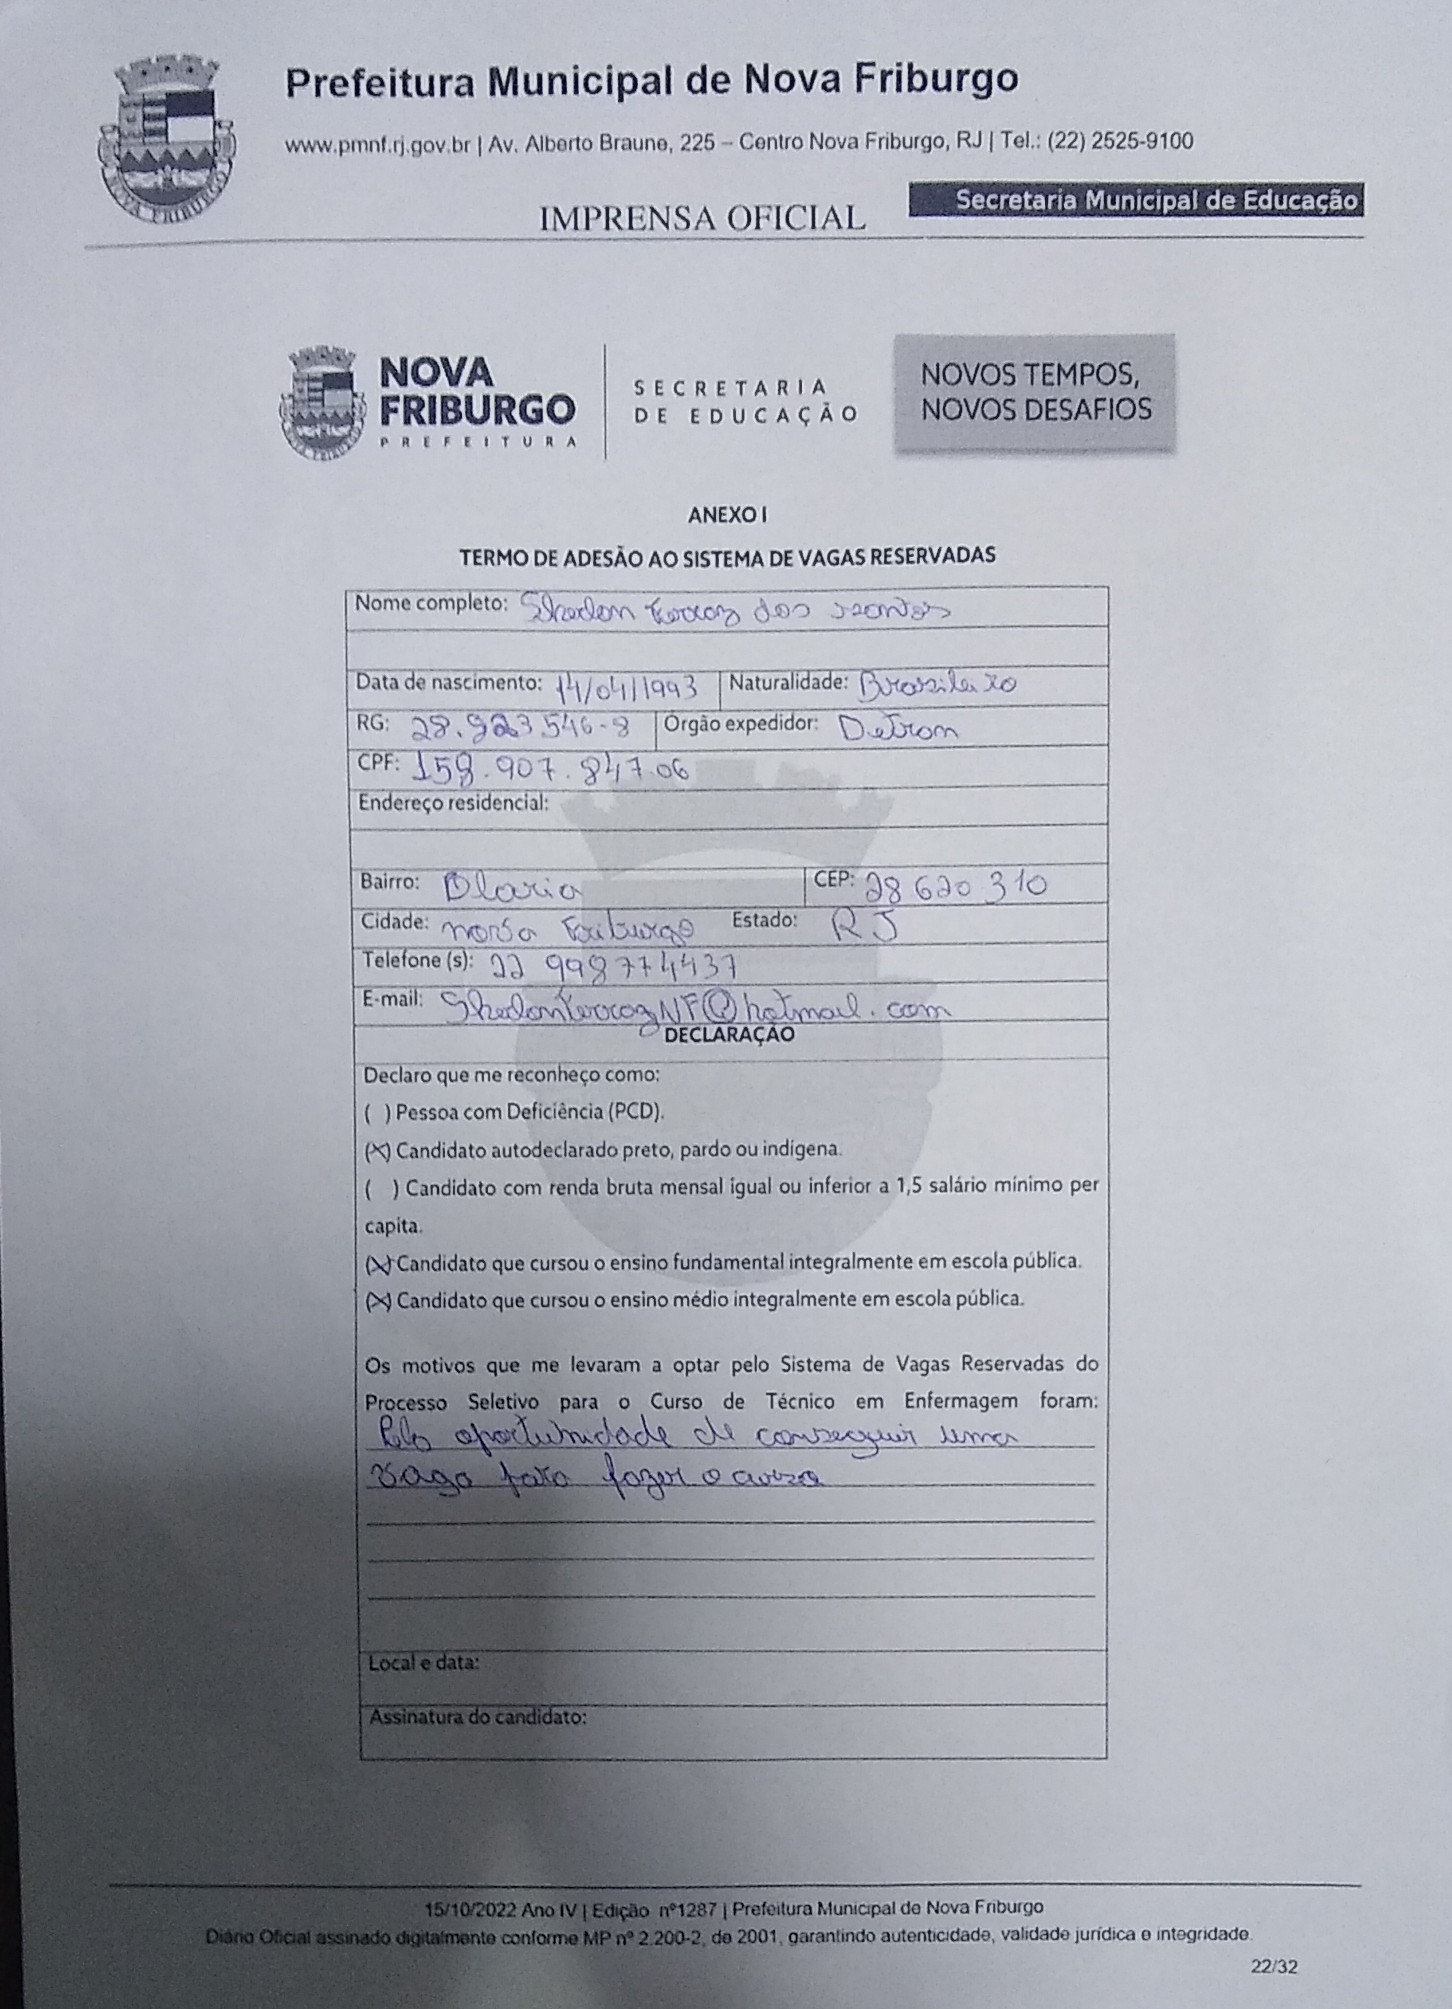 Prefeitura Municipal de Nova Friburgo
www.pmnf.rj.gov.br | Av. Alberto Braune, 225 – Centro Nova Friburgo, RJ | Tel.: (22) 2525-9100
Secretaria Municipal de Educação
IMPRENSA OFICIAL
NOVA FRIBURGO
NOVA
FRIBURGO
PREFEITURA
SECRETARIA
DE EDUCAÇÃO
NOVOS TEMPOS,
NOVOS DESAFIOS
ANEXO I
TERMO DE ADESÃO AO SISTEMA DE VAGAS RESERVADAS
Nome completo: Shedon Ferraz dos santos
Data de nascimento: 14/04/1993 Naturalidade: Brasileiro
RG: 28.923.546-8 Órgão expedidor: Detran
CPF: 159.907.847.06
Endereço residencial:
Bairro: Olaria CEP: 28 620 310
Cidade: nova Friburgo Estado: RJ
Telefone (s): 22 998774437
E-mail: ShedonferrazNF@hotmail.com
DECLARAÇÃO
Declaro que me reconheço como:
( ) Pessoa com Deficiência (PCD).
(X) Candidato autodeclarado preto, pardo ou indígena.
( ) Candidato com renda bruta mensal igual ou inferior a 1,5 salário mínimo per
capita.
(X) Candidato que cursou o ensino fundamental integralmente em escola pública.
(X) Candidato que cursou o ensino médio integralmente em escola pública.
Os motivos que me levaram a optar pelo Sistema de Vagas Reservadas do
Processo Seletivo para o Curso de Técnico em Enfermagem foram:
Pela oportunidade de conseguir uma
vaga para fazer o curso
Local e data:
Assinatura do candidato:
15/10/2022 Ano IV | Edição nº1287 | Prefeitura Municipal de Nova Friburgo
Diário Oficial assinado digitalmente conforme MP nº 2.200-2, de 2001, garantindo autenticidade, validade jurídica e integridade.
22/32